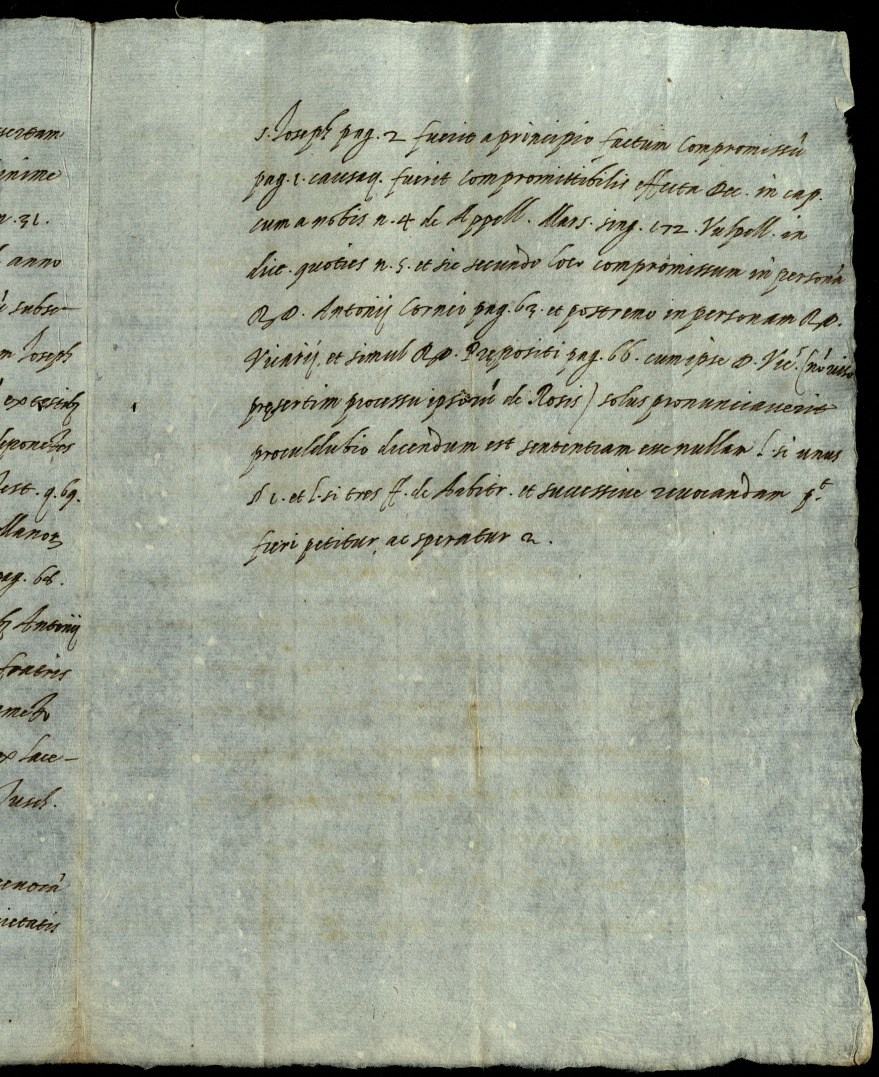 sertam
nime
n. 31.
anno
subse-
m Joseph
ex testib
deponetes
est. q. 69.
pag. 68.
Antonij
fratris
ex lace-
Tusch.
cietatis
s. Joseph pag. 2 fuerit a principio factum Compromissũ
pag. 1. causaq. fuerit compromittibilis effecta Dec. in cap.
cum a nobis n. 4 de Appell. Mars. sing. 172. Vulpell. in
dict. quoties n. 5. et sic secundo loco compromissum in personã
R. D. Antonij Cornei pag. 63. et postremo in personam R. D.
Vicarij, et simul R. D. Prepositi pag. 66. cum ipse D. Vic.s (nõ viso
presertim processu ipsorũ de Rosis) solus pronunciaverit
proculdubio dicendum est sententiam esse nullam l. si unus
§ 1. et l. si tres ff. de Arbitr. et successive revocandam p.t
fieri petitur, ac speratur